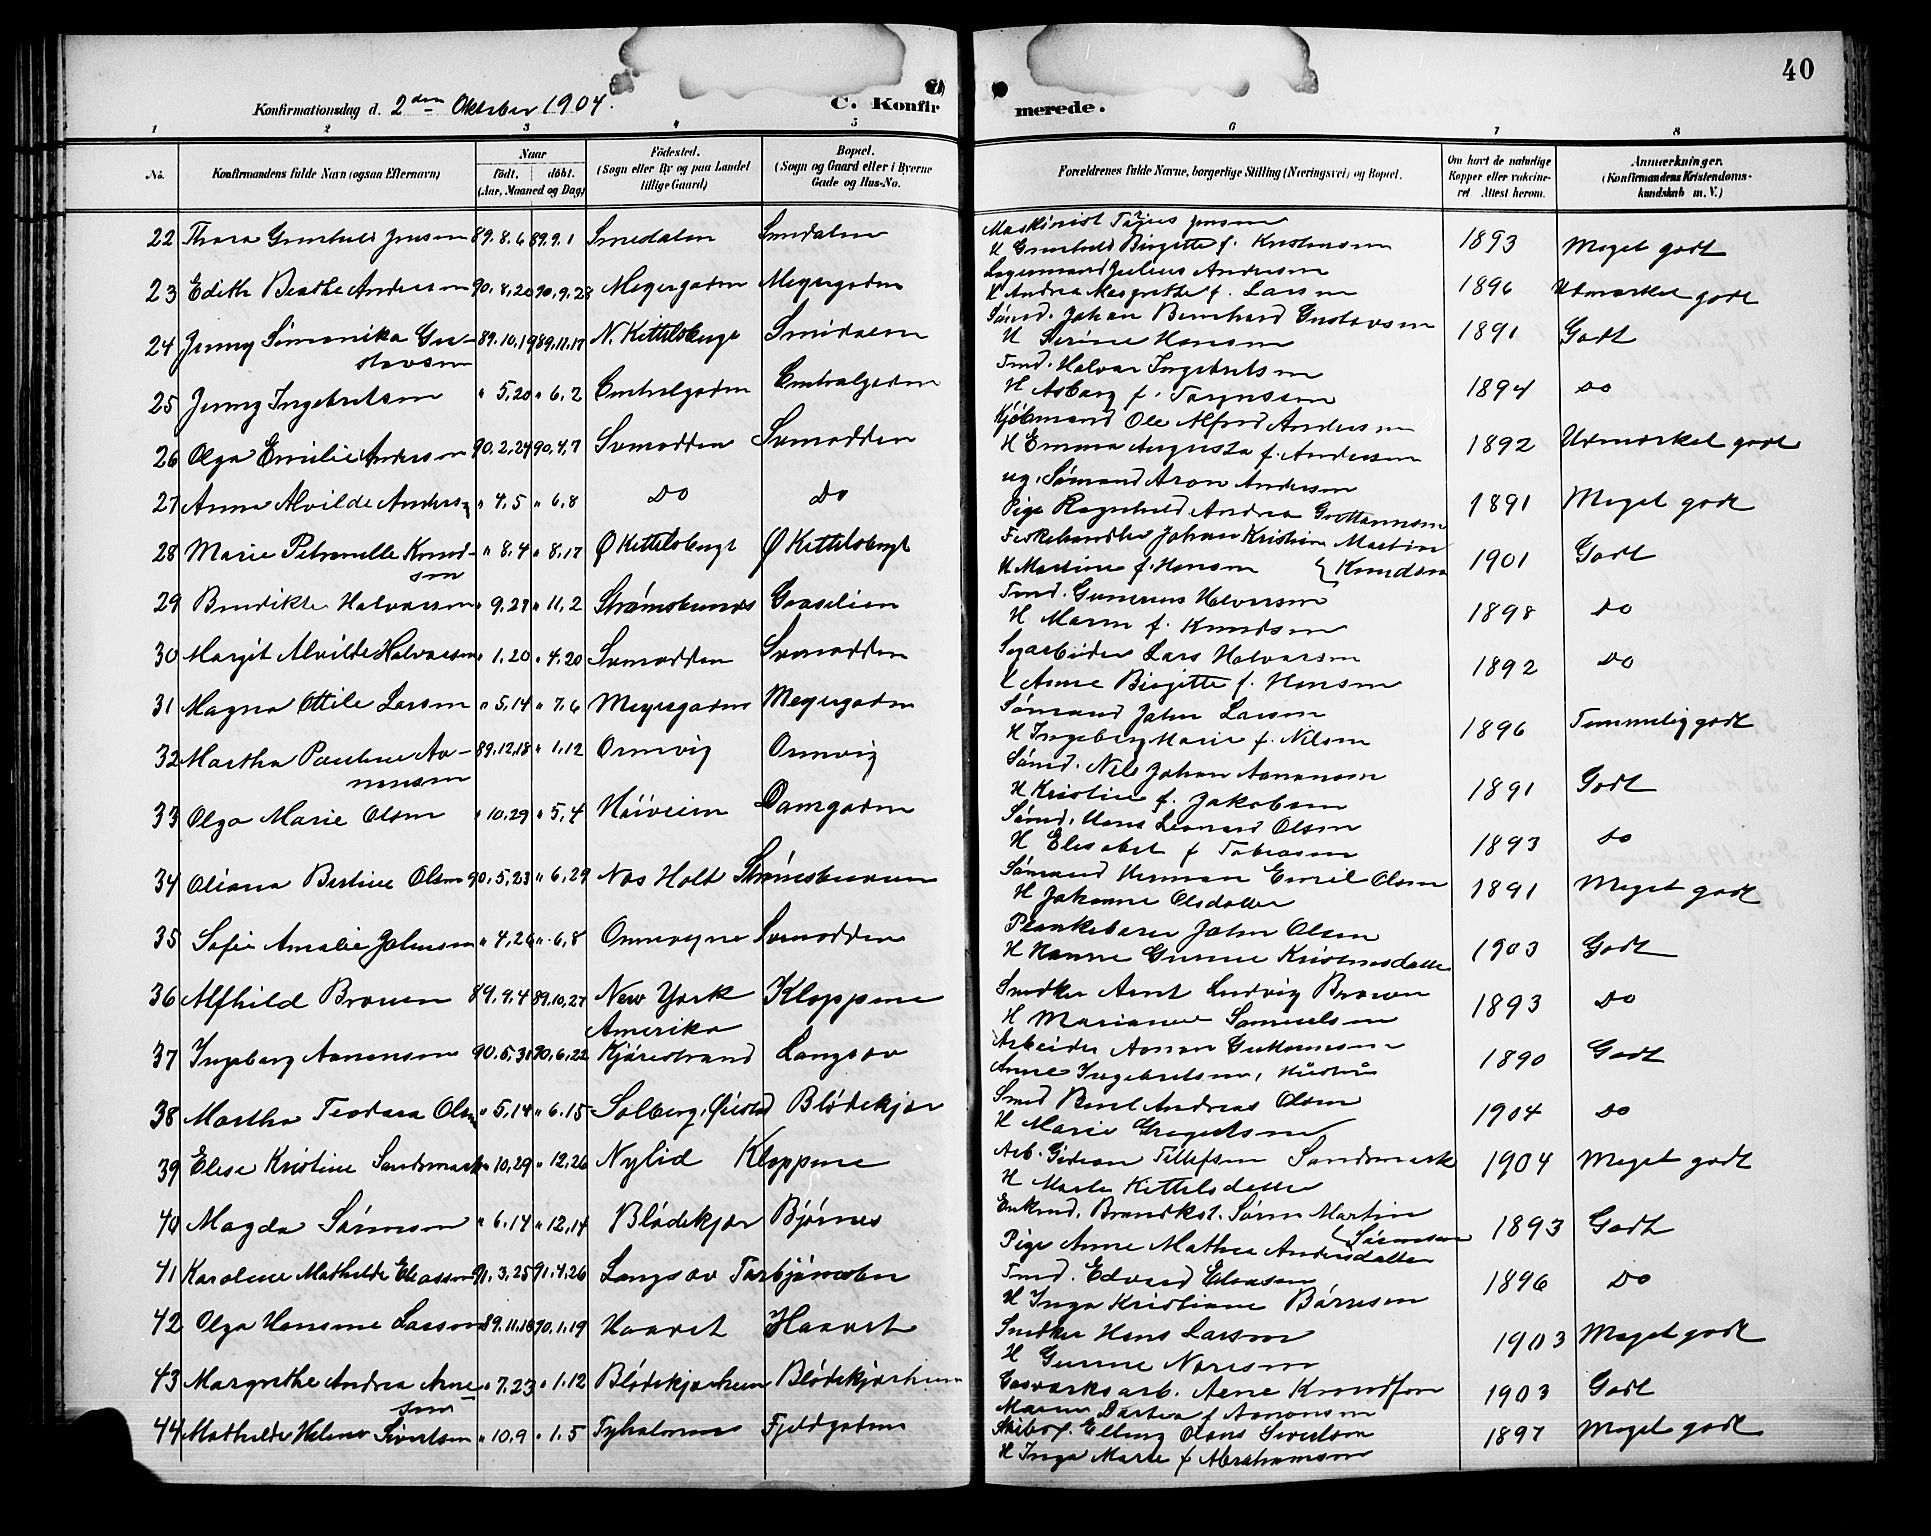 40
Konfirmationsdag d. 2den Oktober 1904.
C. Konfirmerede.
1 2 3 4 5 6 7 8
No.
Konfirmandens fulde Navn (ogsaa Efternavn).
Naar
födt. döbt.
(Aar, Maaned og Dag)
Födested.
(Sogn eller By og paa Landet
tillige Gaard)
Bopæl.
(Sogn og Gaard eller i Byerne
Gade og Hus-No.
Forældrenes fulde Navne, borgerlige Stilling (Næringsvei) og Bopæl.
Om havt de naturlige
Kopper eller vakcine-
ret Attest herom.
Anmærkninger.
(Konfirmandens Kristendoms-
kundskab m. V.)
22 Thora Gunhild Jensen 89.8.6 89.9.1 Smedalen Smedalen Maskinist Jensen 1893 Meget godt
H Gunhild Birgitte f. Kristensen
23 Edith Beathe Andersen 90.8.20 90.9.28 Meyergaden Meyergaden Lagermand Julius Andersen 1896 Udmærket godt
H Andrea Margrethe f. Larsen
24 Jenny Simonika Gu-
stavsen 89.10.19 89.11.17 N. Kittelsbugt Smedalen Sömd. Johan Bernhard Gustavsen 1891 Godt
H Serine Hansen
25 Jenny Ingebretsen " 5.20 " 6.2 Centralgaden Centralgaden Tmd. Halvor Ingebretsen 1894 do
H Asborg f. Terjesen
26 Olga Emilie Andersen 90.2.24 90.4.7 Svinodden Svinodden Kjöbmand Ole Alfred Andersen 1892 Udmærket godt
H Emma Augusta f. Andersen
27 Anna Alvilde Andersen " 4.5 " 6.8 Do Do ug. Sømand Aron Andersen 1891 Meget godt
Pige Ragnhild Andrea Guttormsen
28 Marie Petronelle Knud-
sen " 8.4 " 8.17 Ø Kittelsbugt Ø Kittelsbugt Fiskehandler Johan Kristian Martin 1901 Godt
H Martine f. Hansen { Knudsen
29 Bendikte Halvorsen " 9.27 " 11.2 Strømsbunes Gaaselien Tmd. Gunerius Halvorsen 1898 do
H Maren f. Knudsen
30 Margit Alvilde Halvorsen " 1.20 " 4.20 Svinodden Svinodden Sagarbeider Lars Halvorsen 1892 do
H Anne Birgitte f. Hansen
31 Magna Ottile Larsen " 5.14 " 7.6 Meyergaden Meyergaden Sømand John Larsen 1896 Temmelig godt
H Ingeborg Marie f. Nilsen
32 Martha Pauline Aa-
nensen 89.12.18 " 1.12 Ormvig Ormvig Sömd. Nils Johan Aanensen 1891 Godt
H Kristine f. Jakobsen
33 Olga Marie Olsen " 10.29 " 5.4 Høiveien Damgaden Sömd. Hans Leonard Olsen 1893 do
H Elisabet f Tobiasen
34 Oliana Bertine Olsen 90.5.23 " 6.29 Næs Holt Strømsbunes Sømand Herman Emil Olsen 1891 Meget godt
H Johanne Olsdatter
35 Sofie Amalie Johnsen " 4.26 " 6.8 Svinodden Plankebærer John Olsen 1903 Godt
H Hanne Gurine Kristensdatter
36 Alfhild Brown 89.9.4 89.10.27 New York
Amerika Kloppene Snedker Arnt Ludvig Brown 1893 do
H Mariane Samuelsen
37 Ingeborg Aanonsen 90.5.31 90.6.22 Kjørestrand Langsæv Arbeider Aanon Guttormsen 1890 Godt
Anne Ingebretsen, Hustru
38 Martha Teodora Olsen " 5.14 " 6.15 Solberg, Øiestad Blødekjær Smed Berl Andreas Olsen 1904 do
H Marie Gregertsen
39 Elise Kristine Sandsmark " 10.29 " 12.26 Nylid Kloppene Arb. Gideon Tellefsen Sandsmark 1904 Meget godt
H Marte Kittelsdatter
40 Magda Sørensen " 6.14 " 12.14 Blødekjær Bjørnes Enkmd. Brandkst. Sørn Martin 1893 Godt
{ Sørensen
Pige Anne Mathea Andersdatter
41 Karoline Mathilde Eliassen 91.3.25 91.4.26 Langsæv Torbjørnsbu Tmd. Edvard Eliassen 1896 Do
H Inga Kristiane Børresen
42 Olga Hansine Larsen 89.11.18 90.1.19 Haavet Haavet Snedker Hans Larsen 1903 Meget godt
H Gurine
43 Margrethe Andrea Arne-
sen " 7.23 " 1.12 Blødekjærheien Blødekjærheien Gasværksarb. Arne Knudsen 1903 Godt
Maren Dorthea f Aanonsen
44 Mathilde Helene Sivertsen " 10.9 " 1.5 Tyholmen Fjeldgaden Skibsf. Elling Olaus Sivertsen 1897 Meget godt
H Inga Marie f Abrahamsen